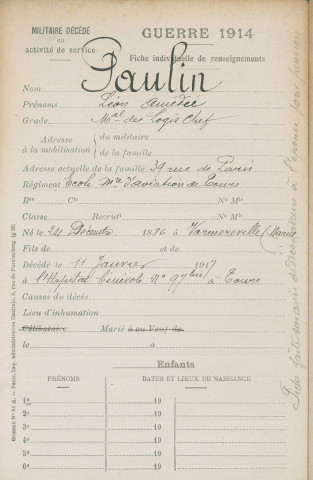 MILITAIRE DÉCÉDÉ
en
activité de service
GUERRE 1914
Fiche individuelle de renseignements
Nom Paulin
Prénoms Léon Amédée
Grade Mal des Logis Chef
Adresse à la mobilisation
du militaire
de la famille
Adresse actuelle de la famille 39 rue de Paris
Régiment Ecole Mre d'aviation de Tours
Bon Cie No Mle
Classe Recrut No Mle
Né le 24 Décembre 1886 à Warmereville (Marne)
Fils de et de
Décédé le 11 Janvier 1917
à l'Hôpital Bénévole No 97 bis à Tours
Causes du décès
Lieu d'inhumation
Célibataire Marié ou Veuf de
le à
Enfants
PRÉNOMS DATES ET LIEUX DE NAISSANCE
1o 19
2o 19
3o 19
4o 19
5o 19
6o 19
Fiche faite en vue de à l'épouse pour pension